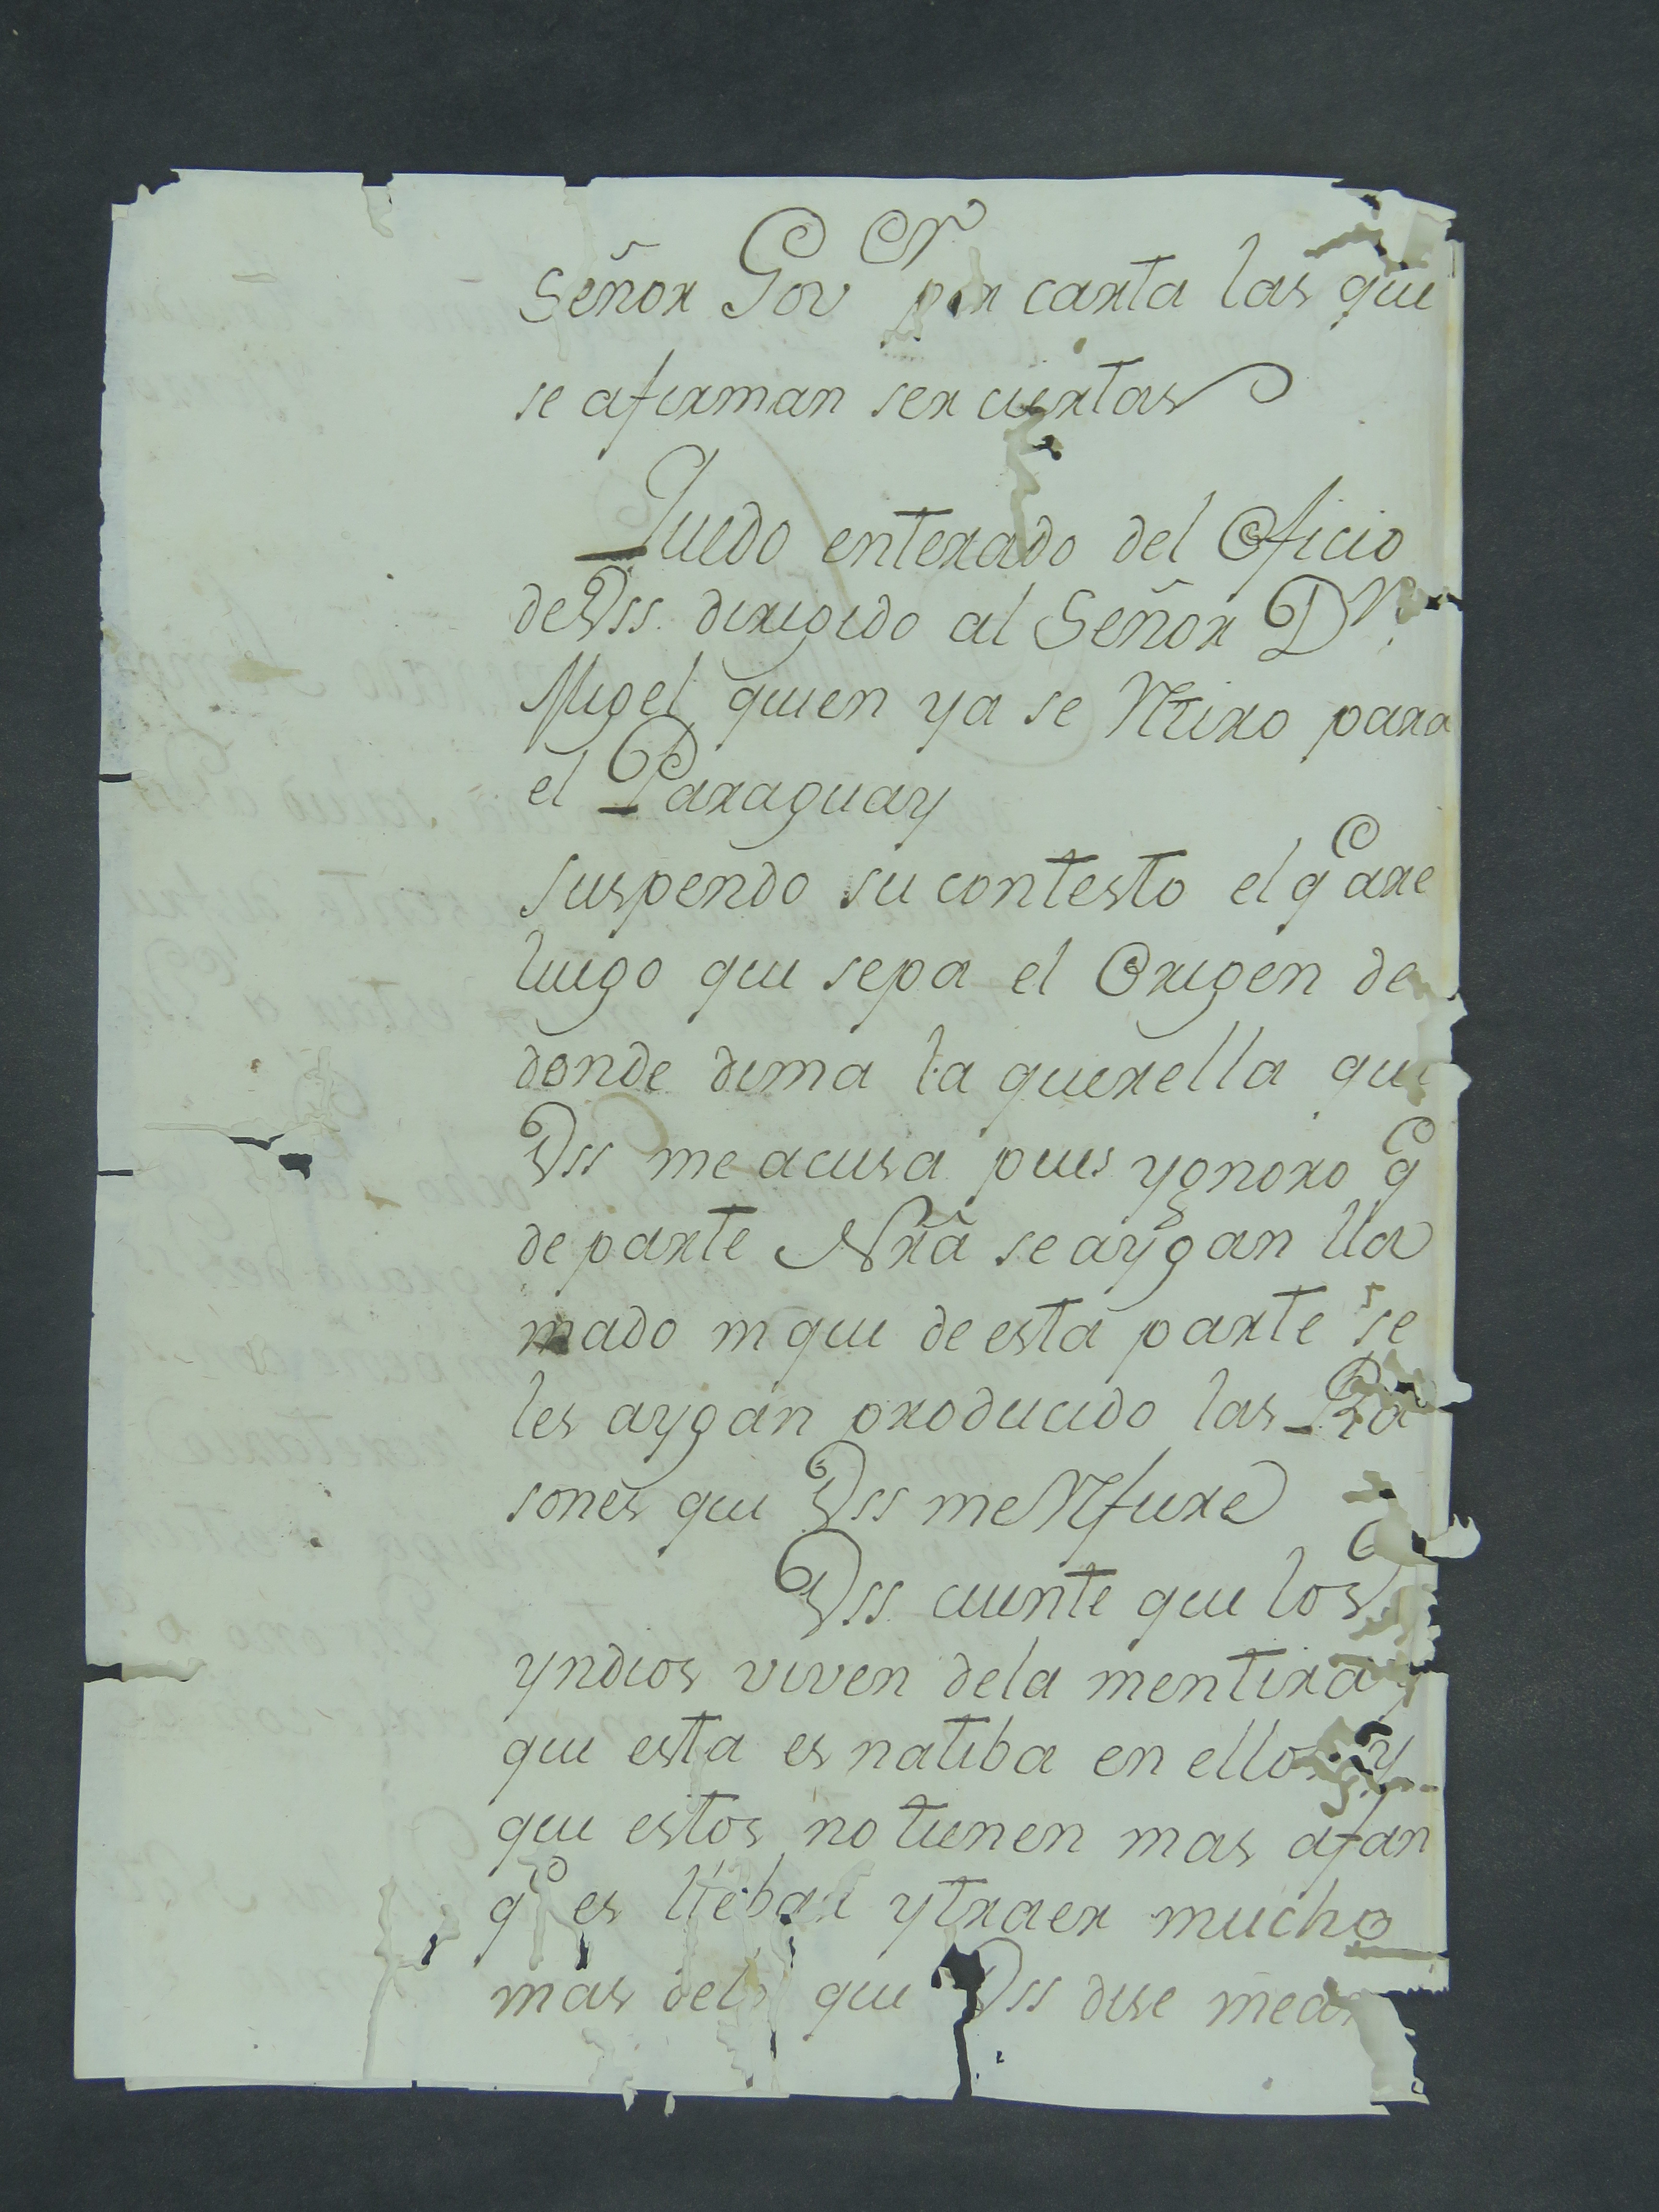 Señor Gov.or por carta las que
se afirman ser ciertas
Quedo enterado del Oficio
de Vss. dirigido al Señor Dn.
Migel quien ya se Rtiro para
el Paraguay
suspendo su contesto el qe are
luego que sepa el Origen de
donde dima la querella que
Vss me acusa pues ygnoro qe
de parte Nrã se aygan lla
mado ni que de esta parte se
les aygan producido las Ra
sones que Vss me Rfiere
Vss. cuente que los
yndios viven dela mentira y
que esta es natiba en ellos y
que estos no tienen mas afan
qe es llebar y traer mucho
mas del que Vss dise